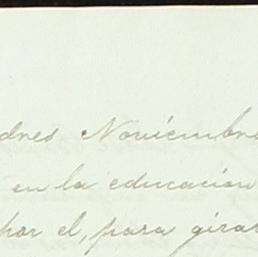 dres Noviembre
en la educacion
por el, para girar